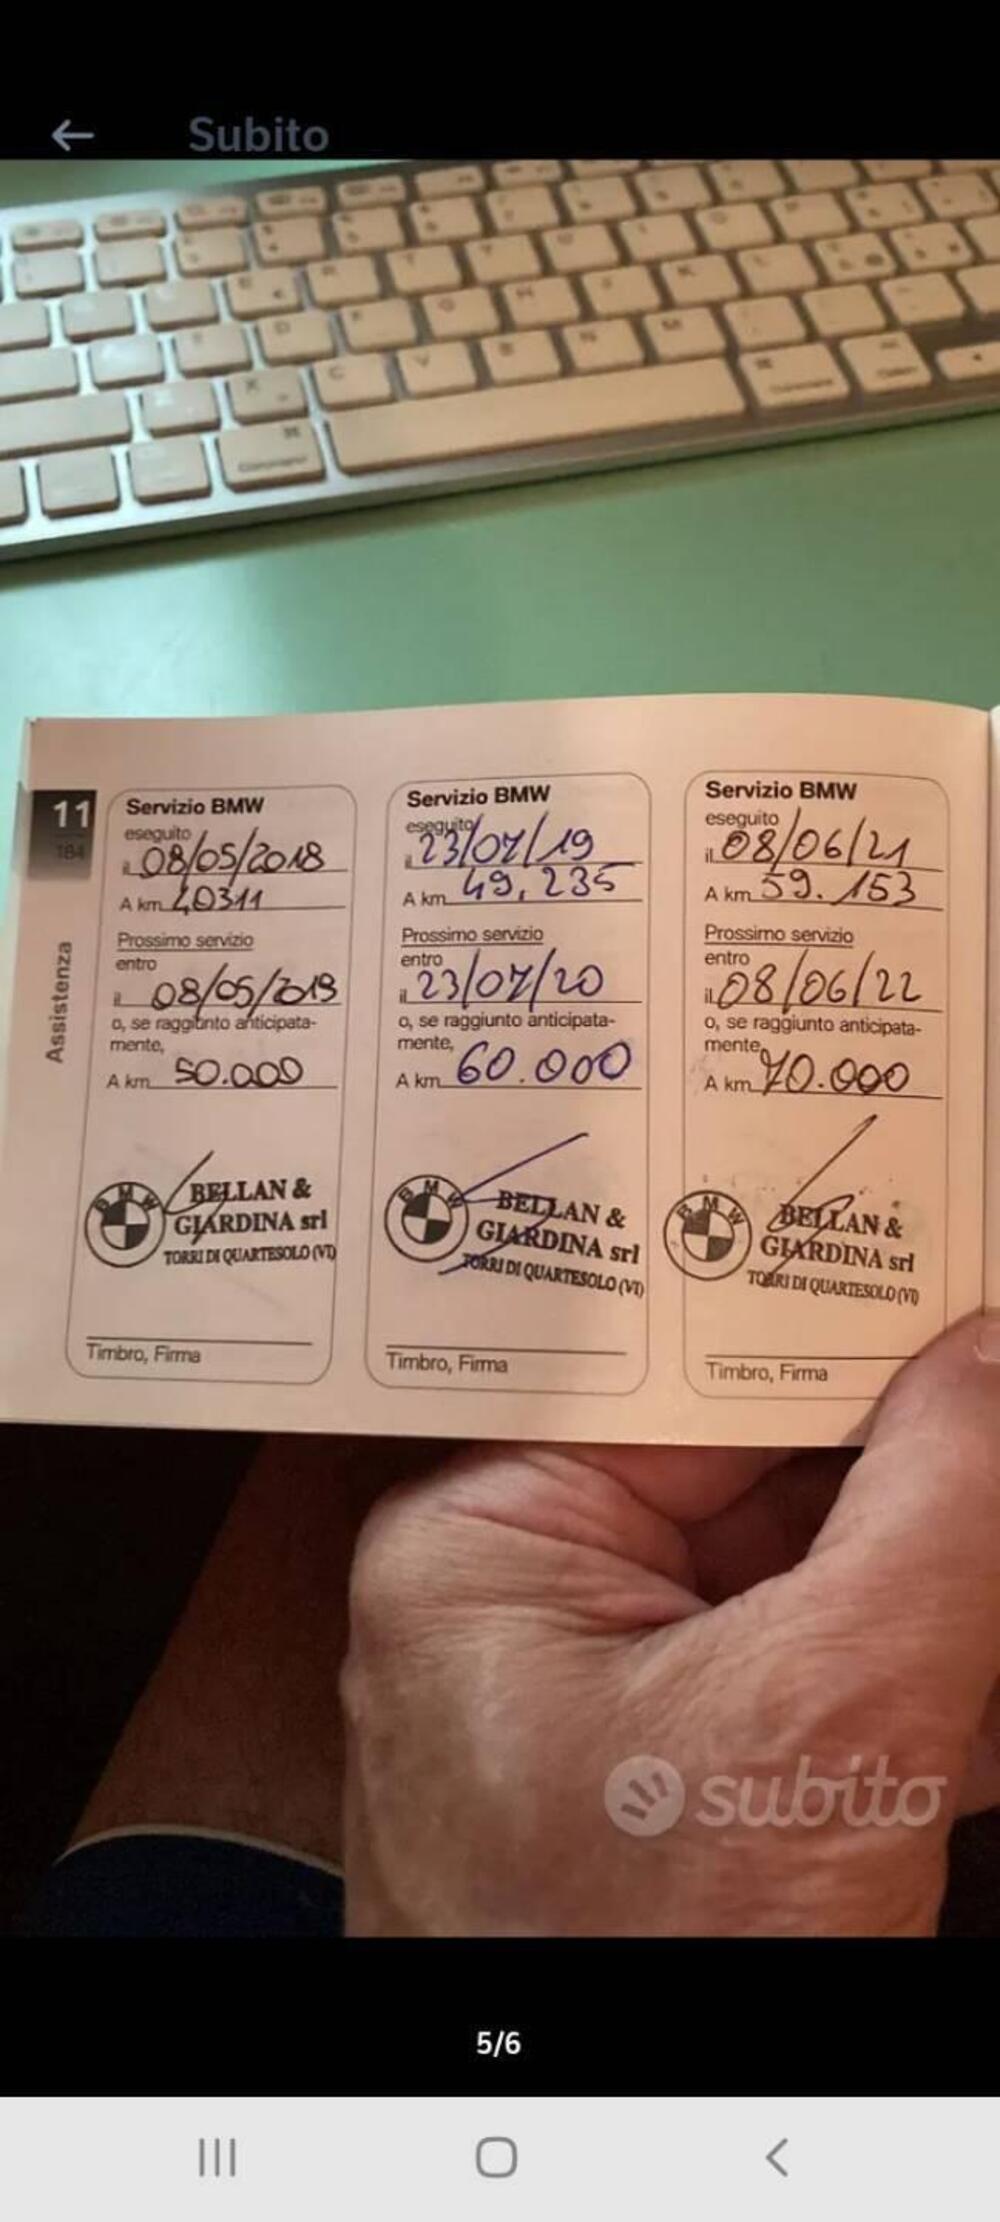 Subito
11
184
Assistenza
Servizio BMW
eseguito
il 08/05/2018
A km 40311
Prossimo servizio
entro
il 08/05/2019
o, se raggiunto anticipata-
mente,
A km 50.000
BMW
BELLAN &
GIARDINA srl
TORRI DI QUARTESOLO (VI)
Timbro, Firma
Servizio BMW
eseguito
il 23/07/19
A km 49.235
Prossimo servizio
entro
il 23/07/20
o, se raggiunto anticipata-
mente,
A km 60.000
BMW
BELLAN &
GIARDINA srl
TORRI DI QUARTESOLO (VI)
Timbro, Firma
Servizio BMW
eseguito
il 08/06/21
A km 59.153
Prossimo servizio
entro
il 08/06/22
o, se raggiunto anticipata-
mente,
A km 70.000
BMW
BELLAN &
GIARDINA srl
TORRI DI QUARTESOLO (VI)
Timbro, Firma
subito
5/6